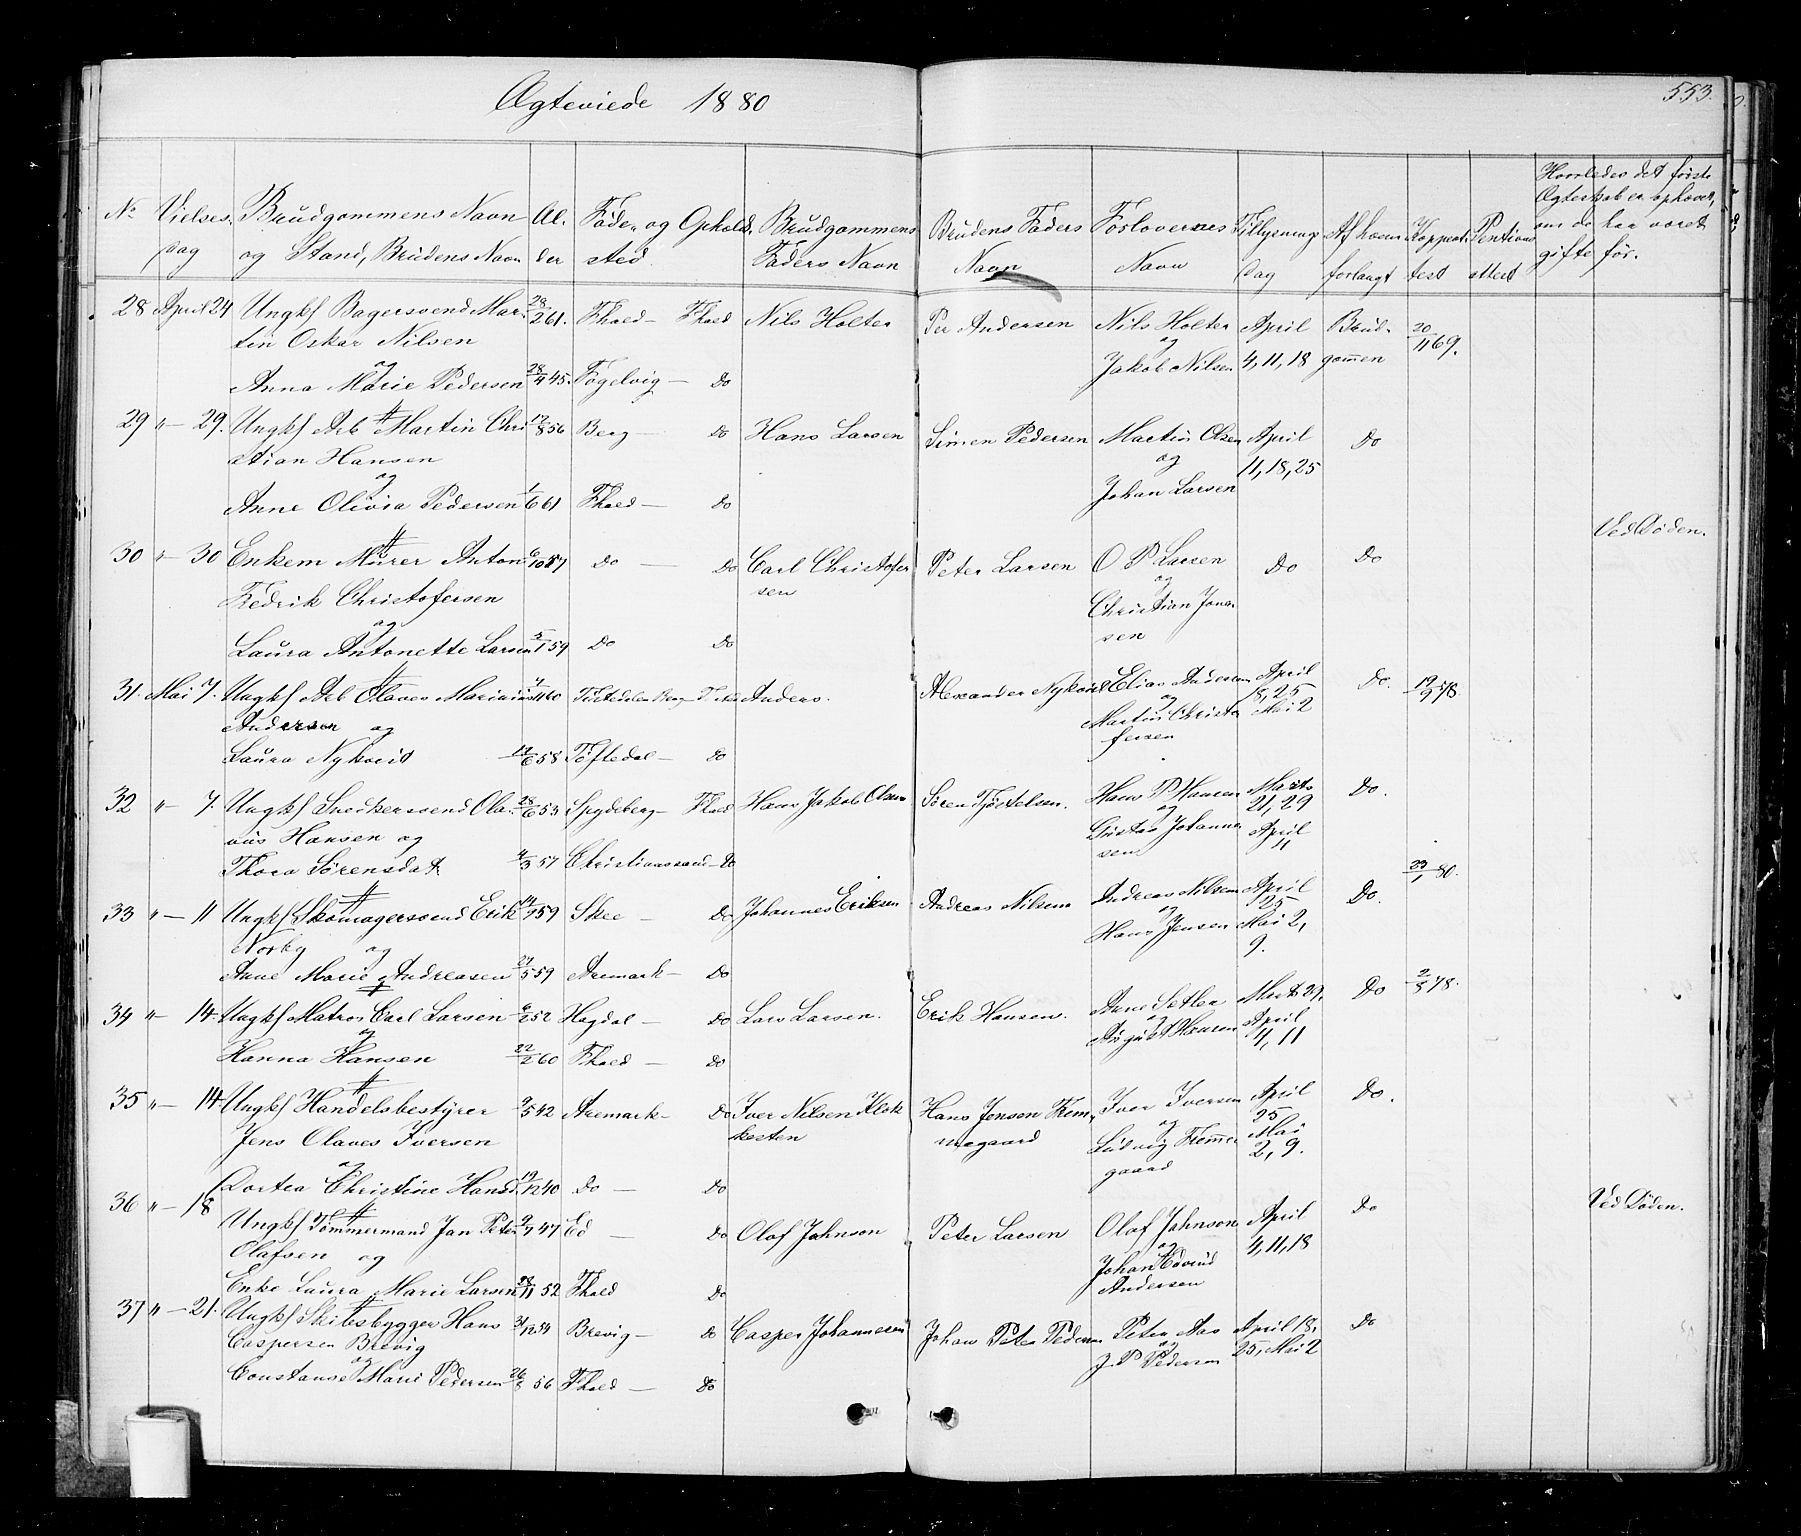 Ægteviede 1880
553.
No Vielses- Brudgommens Navn Al- Føde- og Opholds- Brudgommens Brudens Faders Forlovernes Tillysnings Af hvem Koppeat- Pentions
dag og Stand, Brudens Navn der sted. Faders Navn Navn Navn dag forlangt test attest
Hvorledes det første
Ægteskab er ophævet,
om de har været
gifte før.
28 April 24 Ungkf Bagersvend Mar- 28/2 61. Fhald — Fhald Nils Holter Per Andersen Nils Holter April Brud- 20/11 69.
tin Oskar Nilsen og
og Jakob Nilsen 4, 11, 18 gommen
Anna Marie Pedersen 28/4 45. Fogelvig — Do
29 " — 29. Ungkf Arb Martin Chri 17/8 56 Berg — Do Hans Larsen Simen Pedersen Martin Olsen April Do
stian Hansen og 11, 18, 25
og Johan Larsen
Anne Olivia Pedersen 1/6 61 Fhald — Do
30 " — 30 Enkem Murer Anton 6/10 57 Do — Do Carl Christofer Peter Larsen O P Larsen Do Do Ved Døden.
Fredrik Christofersen sen og
og Christian Jona
sen
Laura Antonette Larsen 5/1 59 Do Do
31. Mai 7. Ungkf Arb Olaves Marinius Anders. Alexander Nykvist Elias Andersen April Do. 19/9 78.
Andersen og og 18, 25
Martin Christo Mai 2
fersen
Laura Nykvist 14/6 58 Töftedal — Do
32 " — 7. Ungkf Snedkersvend Ola- 28/6 53 Spydeberg — Fhald Hans Jakob Olsen Søren Tjøstelsen. Hans P Hansen Marts Do.
vus Hansen og og 21, 29
Gustav Johanne April
sen 11
Thora Sørensdat 4/3 57 Christianssand — Do
33 " — 11 Ungkf Skomagersvend Erik 59 Skee — Do Johannes Eriksen Andreas Nilsen Andreas Nilsen April Do. 23/1 80.
Norby og og 25
Hans Jensen Mai 2,
9.
Anne Marie Andreasen 24/5 59 Aremark — Do
34 " — 14. Ungkf Matros Carl Larsen 6/2 52 Hogdal — Do Lars Larsen. Erik Hansen. Marts 29, Do 2/5 78.
og og April
August Hansen 4, 11
Hanna Hansen 22/2 60 Fhald — Do
35 " — 14 Ungkf Handelsbestyrer 9/5 42 Aremark — Do Iver Nilsen Klok Hans Jensen Trem Iver Iversen April Do.
Jens Olaves Iversen kesten megaard og 25
og Ludvig Tremme Mai
gaard 2, 9.
Dortea Christine Hansd. 19/12 40 Do — Do
36 " — 18 Ungkf Tømmermand Jan Peter 9/7 47 Ed — Do Olof Jahnson Peter Larsen Olof Jahnson April Do Ved Døden.
Olafsen og og 4, 11, 18
Johan Edvind
Andersen
Enke Laura Marie Larsen 28/11 52 Fhald Do
37 " — 21. Ungkf Skibsbygger Hans 31/12 54 Brevig — Do Casper Johannesen Johan Peter Pedersen Peter Aas April 18, Do
Caspersen Brevig og 25, Mai 2
og J. P Pedersen
Constanse Marie Pedersen 56 Fhald — Do